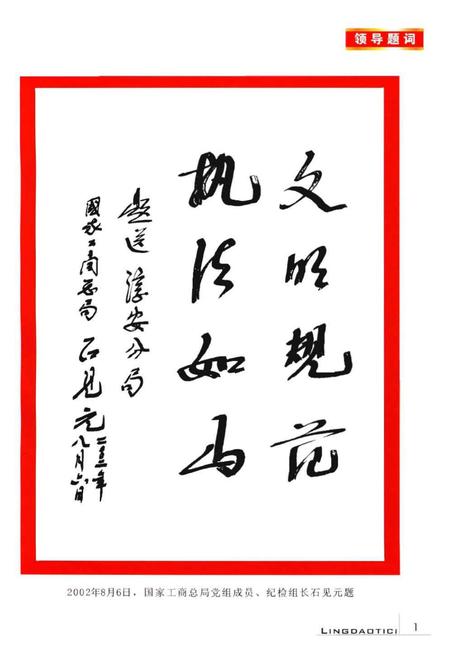 领导题词
文明规范
执法如山
题送 淳安分局
國家工商总局 石见元
二00二年
八月六日
2002年8月6日，国家工商总局党组成员、纪检组长石见元题
LINGDAOTICI 1